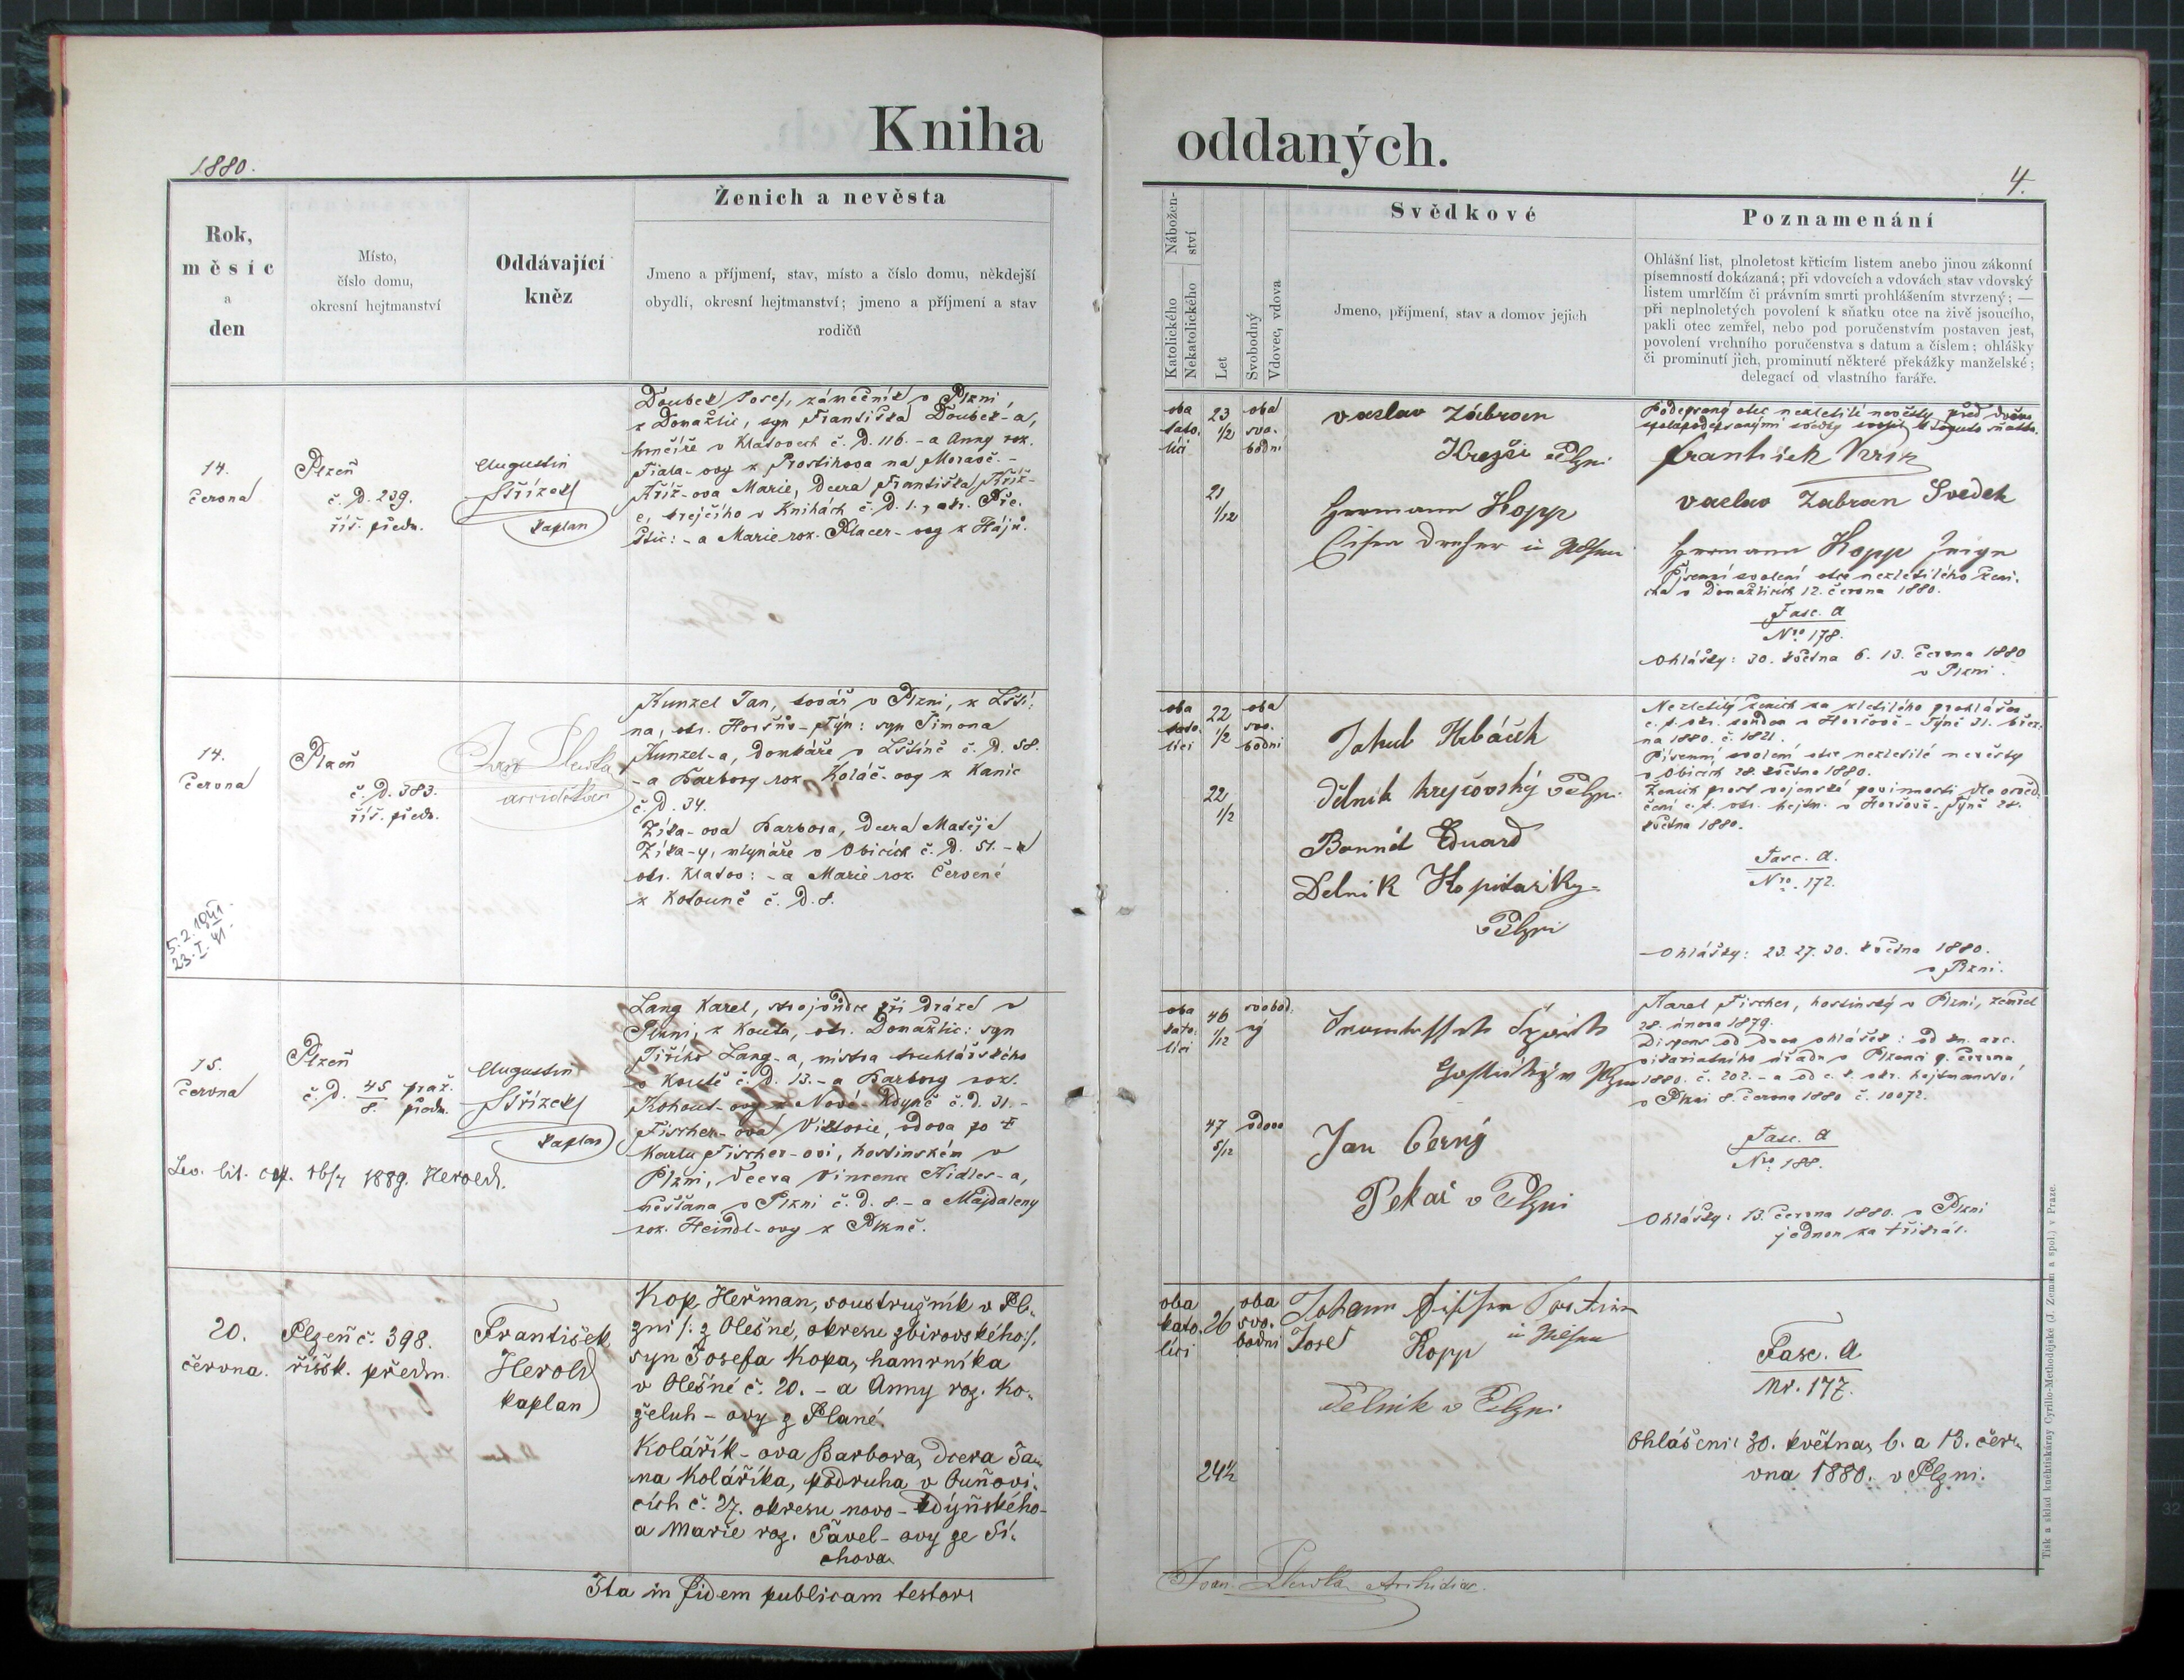 Kniha
oddaných.
1880.
4.
Rok,
měsíc
a
den
Místo,
číslo domu,
okresní hejtmanství
Oddávající
kněz
Ženich a nevěsta
Jmeno a příjmení, stav, místo a číslo domu, někdejší
obydlí, okresní hejtmanství; jmeno a příjmení a stav
rodičů
Nábožen-
ství
Katolického
Nekatolického
Let
Svobodný
Vdovec, vdova
Svědkové
Jmeno, příjmení, stav a domov jejich
Poznamenání
Ohlášní list, plnoletost křticím listem anebo jinou zákonní
písemností dokázaná; při vdovcích a vdovách stav vdovský
listem umrlčím či právním smrti prohlášením stvrzený; —
při neplnoletých povolení k sňatku otce na živě jsoucího,
pakli otec zemřel, nebo pod poručenstvím postaven jest,
povolení vrchního poručenstva s datum a číslem; ohlášky
či prominutí jich, prominutí některé překážky manželské;
delegací od vlastního faráře.
14.
června
Plzeň
č. D. 239.
říš. předm.
Augustin
Střízek
kaplan
Doubek Josef, zámečník v Plzni,
z Domažlic, syn Františka Doubek-a,
hrnčíře v Klatovech č. D. 116. - a Anny roz.
Fiala-ovy z Prostihova na Moravě. -
Kříž-ova Marie, Dcera Františka Kříž-
e, krejčího v Knihách č. D. 1., okr. Pře-
štic: - a Marie roz. Placer-ovy z Hájů.
oba
kato-
líci
23
1/2
oba
svo-
bodni
21
1/12
vaclav Zábran
Krejči v Plzni
Hermann Kopp
Eisendreher in Pilsen
Podepsaný otec nezletilé nevěsty před dvěma
spolupodepsanými svědky svolil k tomuto sňatku.
František Kriz
vaclav Zabran Svedek
Hermann Kopp Zeige
Písemní svolení otce nezletilého ženi-
cha v Domažlicích 12. června 1880.
Fasc. A
Nro 178.
Ohlášky: 30. května 6. 13. června 1880
v Plzni.
14.
června
Plzeň
č. D. 383.
říš. předm.
Kunzel Jan, kovář v Plzni, z Lští-
na, okr. Horšův-Týn: syn Šimona
Kunzel-a, Domkáře v Lštíně č. D. 58.
- a Barbory roz. Koláč-ovy z Kanic
č. D. 34.
Zíka-ova Barbora, Dcera Matěje
Zíka-y, mlynáře v Obicích č. D. 51. - a
okr. Klatov: - a Marie roz. Červené
z Kotouně č. D. 8.
5.2.1941.
23.I.41.
oba
kato-
líci
22
1/2
oba
svo-
bodni
22
1/2
Jakub Hrbáček
Dělník krejčovský v Plzni
Eduard
Delnik
v Plzni
Nezletilý ženich za zletilého prohlášen
c. k. okr. soudem v Horšově-Týně 31. břez-
na 1880. č. 1821.
Písemní svolení otce nezletilé nevěsty
v Obicích 28. května 1880.
Ženich prost vojenské povinnosti dle osvěd-
čení c. k. okr. hejtm. v Horšově-Týně 28.
května 1880.
Fasc. A.
Nro. 172.
Ohlášky: 23. 27. 30. května 1880.
v Plzni.
15.
června
Plzeň
č. D. 45/8. praž.
předm.
Augustin
Střízek
kaplan
Lev. lit. cop. 16/7 1889. Herold.
Lang Karel, strojvůdce při dráze v
Plzni, z Kouta, okr. Domažlic: syn
Jiřího Lang-a, mistra truhlářského
v Koutě č. D. 13. - a Barbory roz.
Kohout-ovy z Nové-Kdyně č. D. 31. -
Fischer-ova Viktorie, vdova po †
Karlu Fischer-ovi, hostinském v
Plzni, Dcera Vincence Hidler-a,
měšťana v Plzni č. D. 8. - a Majdaleny
roz. Heindl-ovy z Plzně.
oba
kato-
líci
46
1/12
svobod-
ný
47
5/12
vdova
Jan Černý
Pekař v Plzni
Karel Fischer, hostinský v Plzni, zemřel
28. února 1879.
Dispens od dvou ohlášek: od kn. arc.
vikariatního úřadu v Plzenci 9. června
1880. č. 202. - a od c. k. okr. hejtmanství
v Plzni 8. června 1880 č. 10072.
Fasc. A
Nro 188.
Ohlášky: 13. června 1880. v Plzni
jednou za třikrát.
20.
června.
Plzeň č. 398.
říšsk. předm.
František
Herold
kaplan
Kop Heřman, soustružník v Pl-
zni /: z Olešné, okresu zbirovského:/,
syn Josefa Kopa, hamrníka
v Olešné č. 20. - a Anny roz. Ko-
želuh-ovy z Plané.
Kolářík-ova Barbora, Dcera Ja-
na Koláříka, podruha v Ouňovi-
cích č. 27. okresu novo-kdýňského -
a Marie roz. Pavel-ovy ze Ti-
chova.
oba
kato-
líci
26
oba
svo-
bodni
24 1/2
Johann
in Pilsen
Josef Kopp
Delnik v Plzni
Fasc. A
Nr. 177.
Ohlášení: 30. května, 6. a 13. čer-
vna 1880. v Plzni.
Ita in fidem publicam testor:
Archidiac.
Tisk a sklad knihtiskárny Cyrillo-Methodějské (J. Zeman a spol.) v Praze.